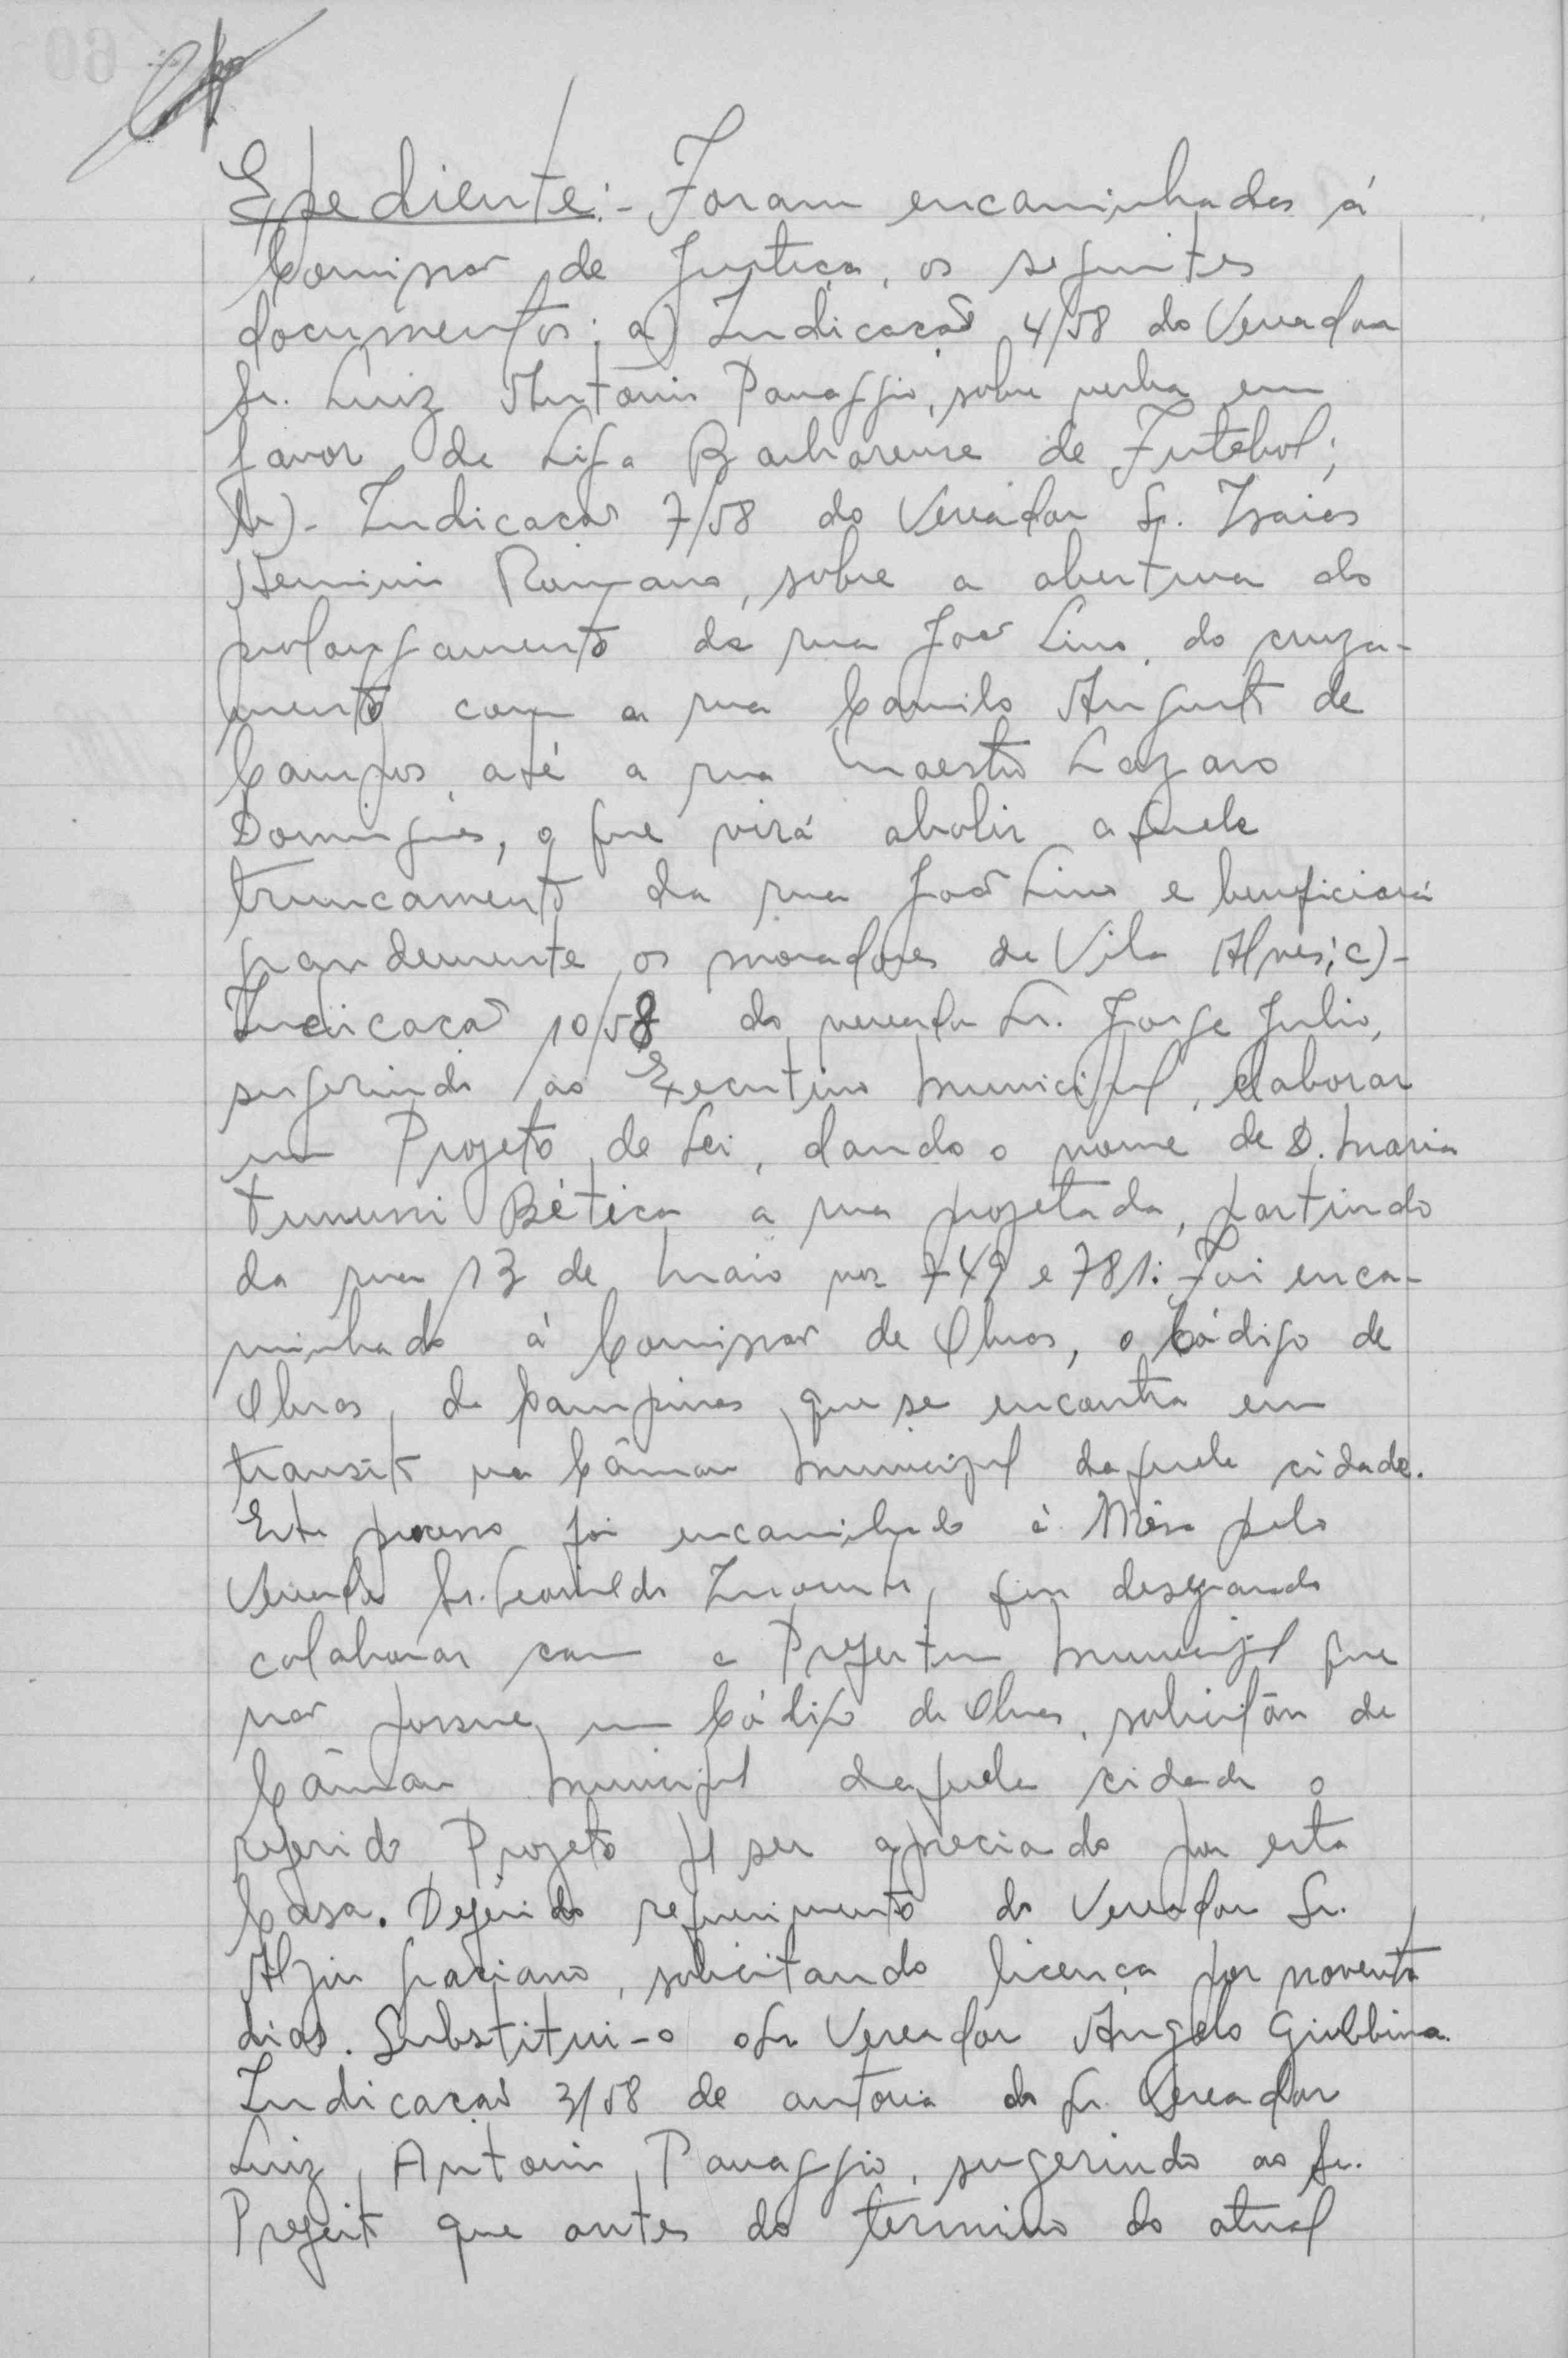 Expediente:- Foram encaminhados á
Comissão de Justiça, os seguintes
documentos: a) Indicação 4/58 do Vereador
Sr. Luiz Antônio Panaggio, sobre verba em
favor da Liga Barbarense de Futebol;
b)- Indicação 7/58 do Vereador Sr. Isaias
Herminio Romano, sobre a abertura do
prolongamento da rua João Lino, do cruza-
mento com a rua Camilo Augusto de
Campos, até a rua Maestro Lazaro
Domingues, o que virá abolir aquele
truncamento da rua João Lino e beneficiará
grandemente os moradores da Vila Alves; c)-
Indicação 10/58 do vereador Sr. Jorge Julio,
sugerindo ao Executivo Municipal, elaborar
um Projeto de Lei, dando o nome de D. Maria
Bética a rua projetada, partindo
da rua 13 de Maio nos 749 e 781: Foi enca-
minhado á Comissão de Obras, o Código de
Obras, de Campinas, que se encontra em
transito na Câmara Municipal daquela cidade.
Este processo foi encaminhado à Mêsa pelo
Vereador Sr. Leonildo, que desejando
colaborar com a Prefeitura Municipal que
não possue um Código de Obras, solicitou da
Câmara Municipal daquela cidade o
referido Projeto p/ ser apreciado por esta
Casa. Deferido requerimento do Vereador Sr.
Alzir Graciano, solicitando licença por noventa
dias. Substitui-o o Sr. Vereador Ângelo Giubbina.
Indicação 3/58 de autoria do Sr. Vereador
Luiz Antonio Panaggio, sugerindo ao Sr.
Prefeito que antes do término do atual